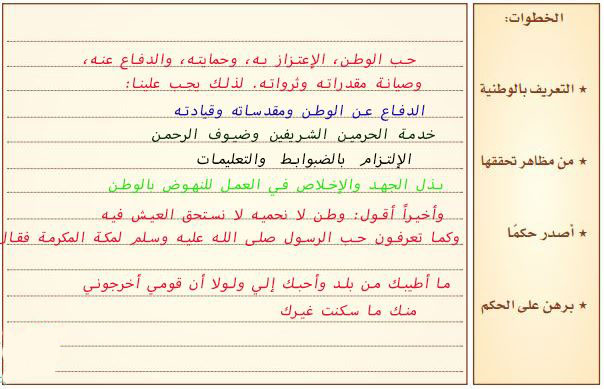 الخطوات:
★ التعريف بالوطنية
★ من مظاهر تحققها
★ أصدر حكمًا
★ برهن على الحكم
حب الوطن، الإعتزاز به، وحمايته، والدفاع عنه،
وصيانة مقدراته وثرواته. لذلك يجب علينا:
الدفاع عن الوطن ومقدساته وقيادته
خدمة الحرمين الشريفين وضيوف الرحمن
الإلتزام بالضوابط والتعليمات
بذل الجهد والإخلاص في العمل للنهوض بالوطن
وأخيراً أقول: وطن لا نحميه لا نستحق العيش فيه
وكما تعرفون حب الرسول صلى الله عليه وسلم لمكة المكرمة فقال
ما أطيبك من بلد وأحبك إلي ولولا أن قومي أخرجوني
منك ما سكنت غيرك